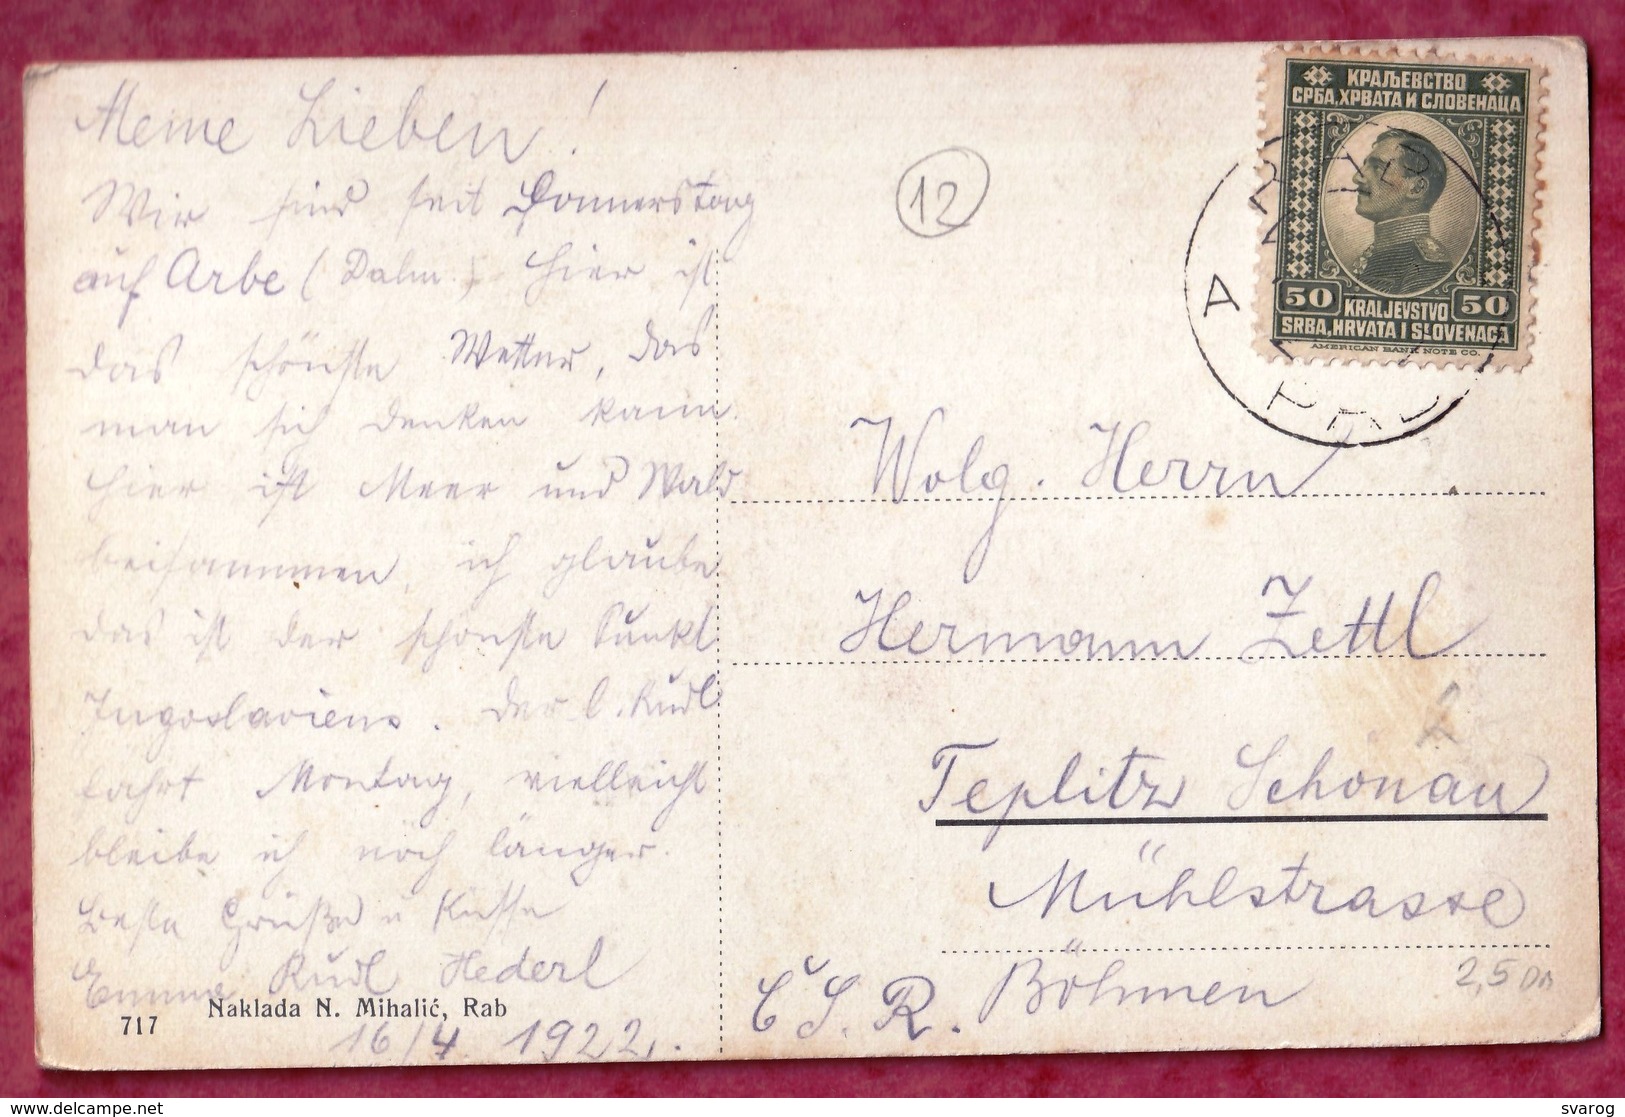 Meine Lieben!
Wir sind seit Donnerstag
auf Arbe (Dalm.) hier ist
das schönste Wetter, das
man sich denken kann.
hier ist Meer und Wald
beisammen, ich glaube
das ist der schönste Punkt
Jugoslaviens. Der l. Rudl
fährt Montag, vielleicht
bleibe ich noch länger.
Beste Grüße u Küsse
Emma Rudl Hederl
Naklada N. Mihalić, Rab
717
16/4 1922.
12
КРАЉЕВСТВО
СРБА, ХРВАТА И СЛОВЕНАЦА
50 KRALJEVSTVO 50
SRBA, HRVATA I SLOVENACA
AMERICAN BANK NOTE CO.
Wolg. Herrn
Hermann Zettl
Teplitz Schönau
Mühlstrasse
Č S. R. Böhmen
2,5
svarog